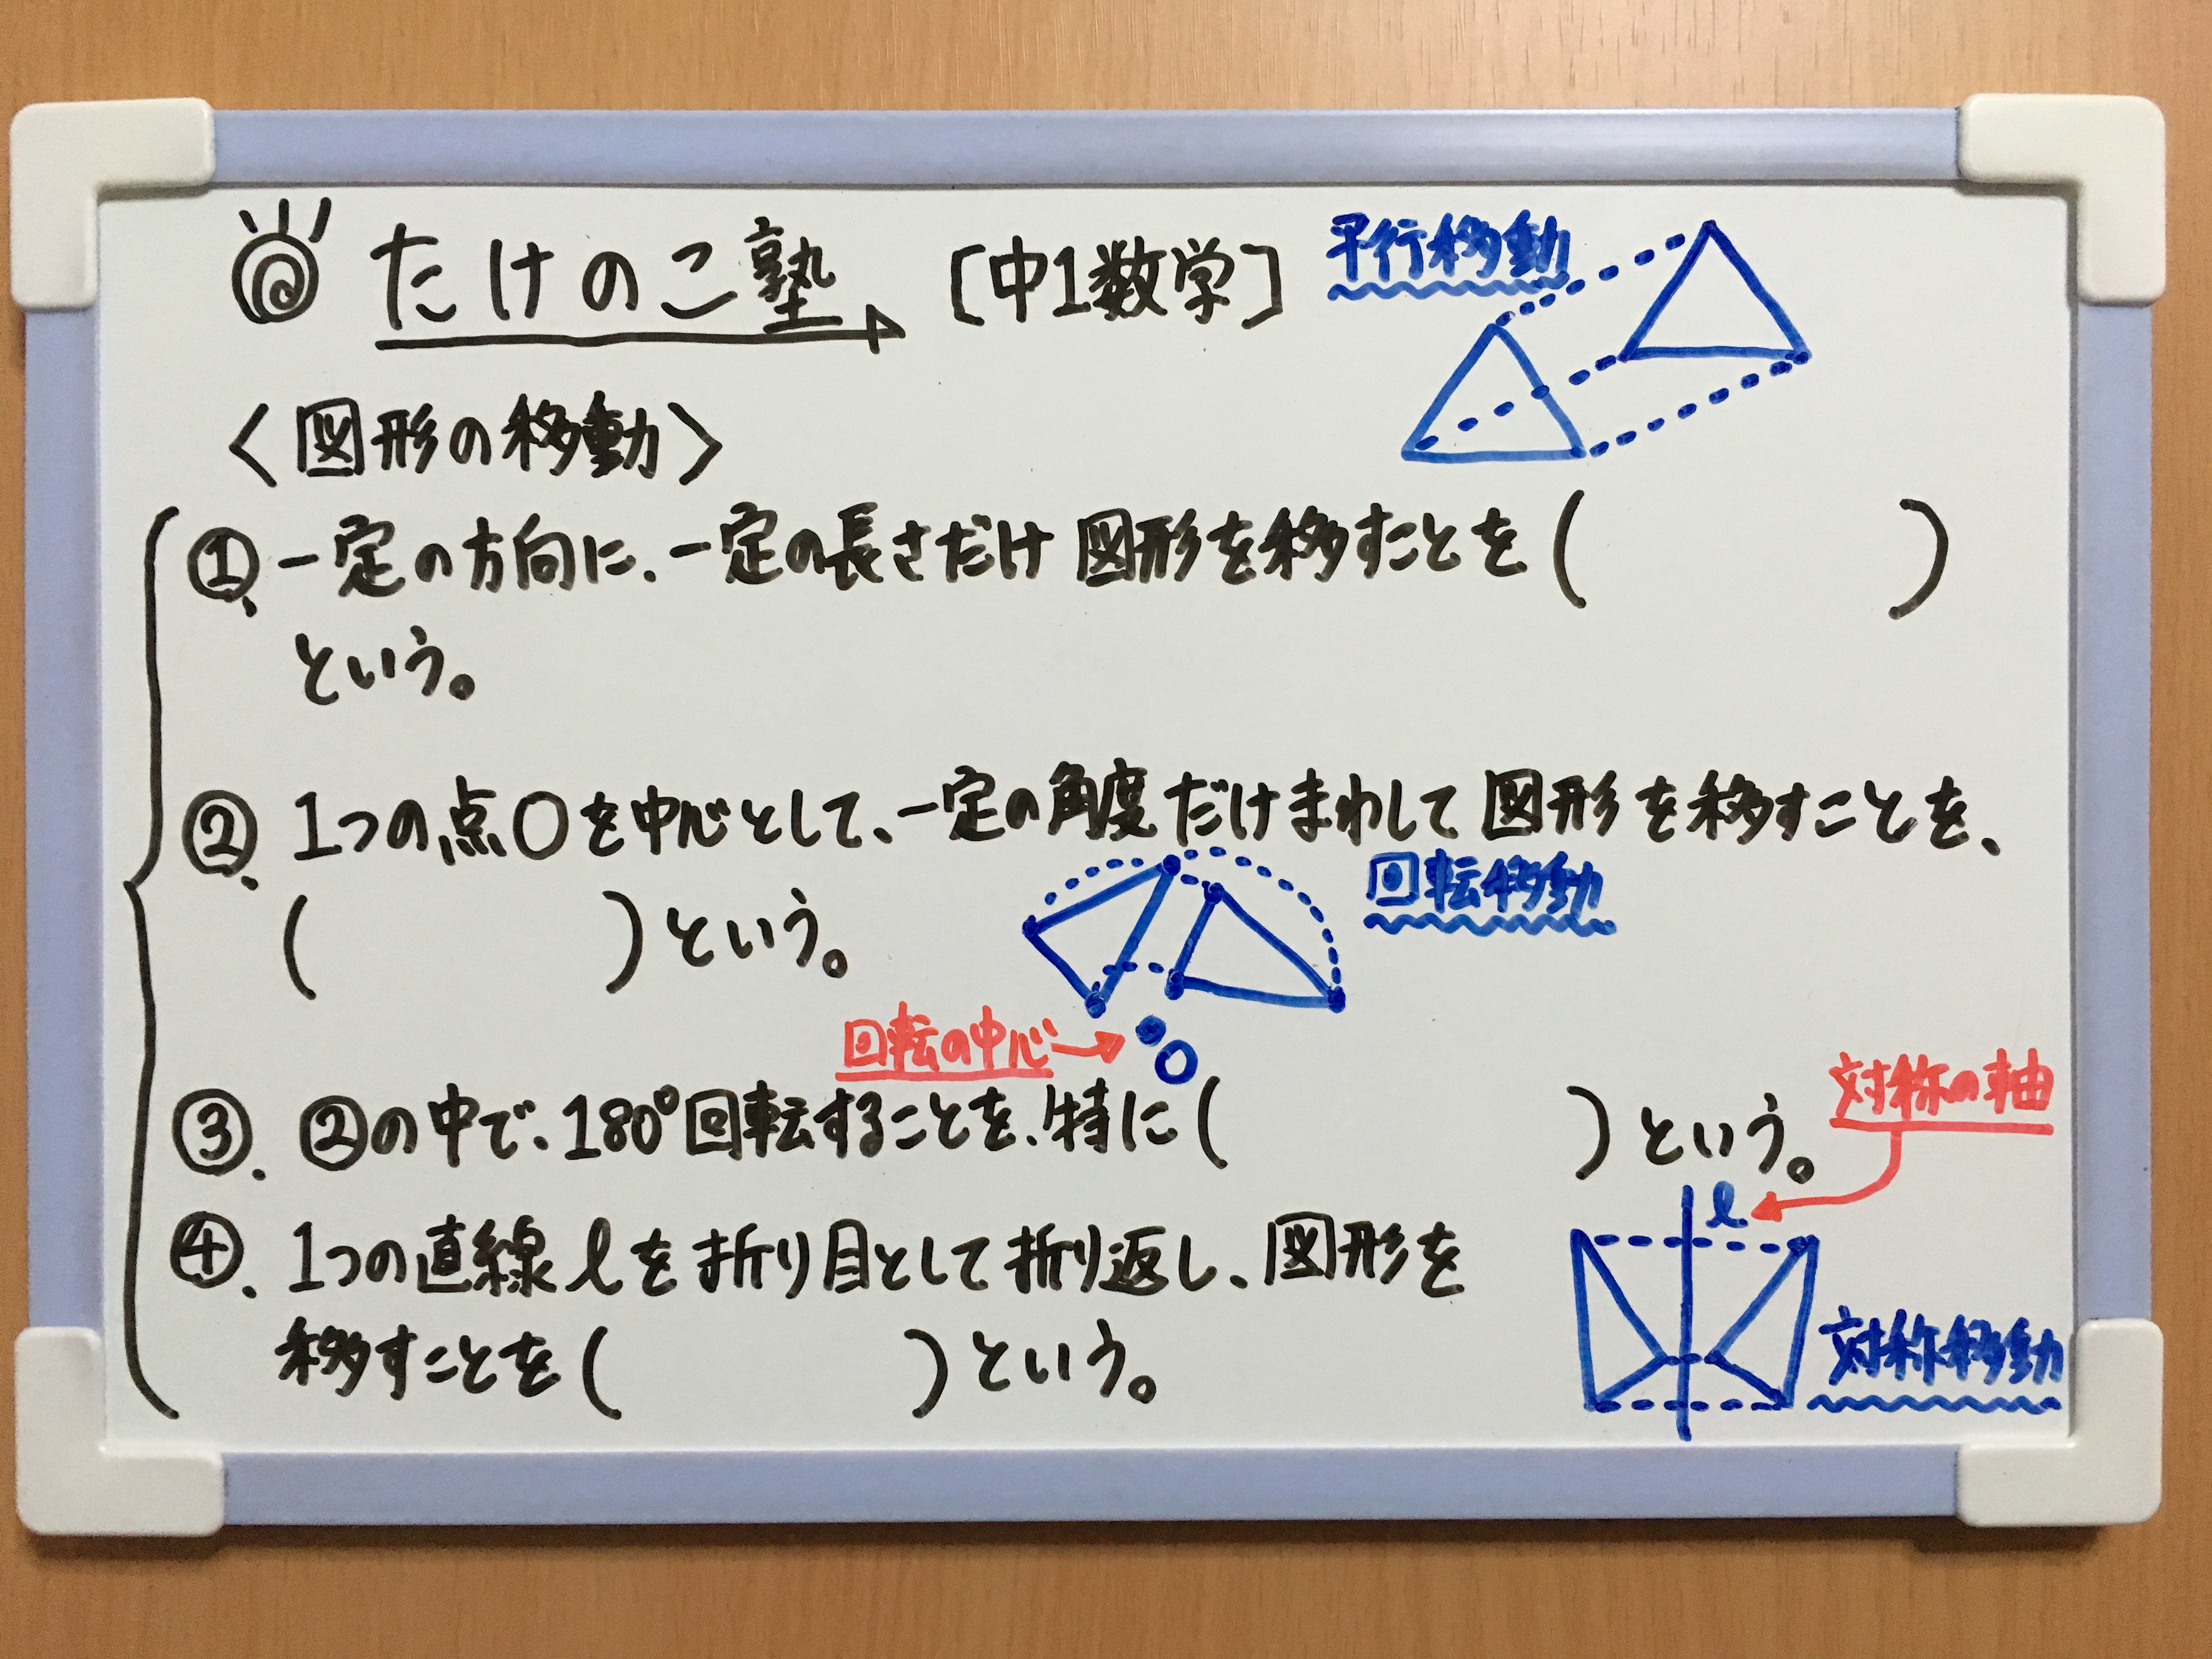 たけのこ塾 [中1数学]
平行移動
〈図形の移動〉
①、一定の方向に、一定の長さだけ図形を移すことを(　　　)
という。
②、1つの点Oを中心として、一定の角度だけまわして図形を移すことを、
(　　　)という。
回転移動
回転の中心→
O
③、②の中で、180°回転することを、特に(　　　)という。
対称の軸
ℓ
④、1つの直線ℓを折り目として折り返し、図形を
移すことを(　　　)という。
対称移動